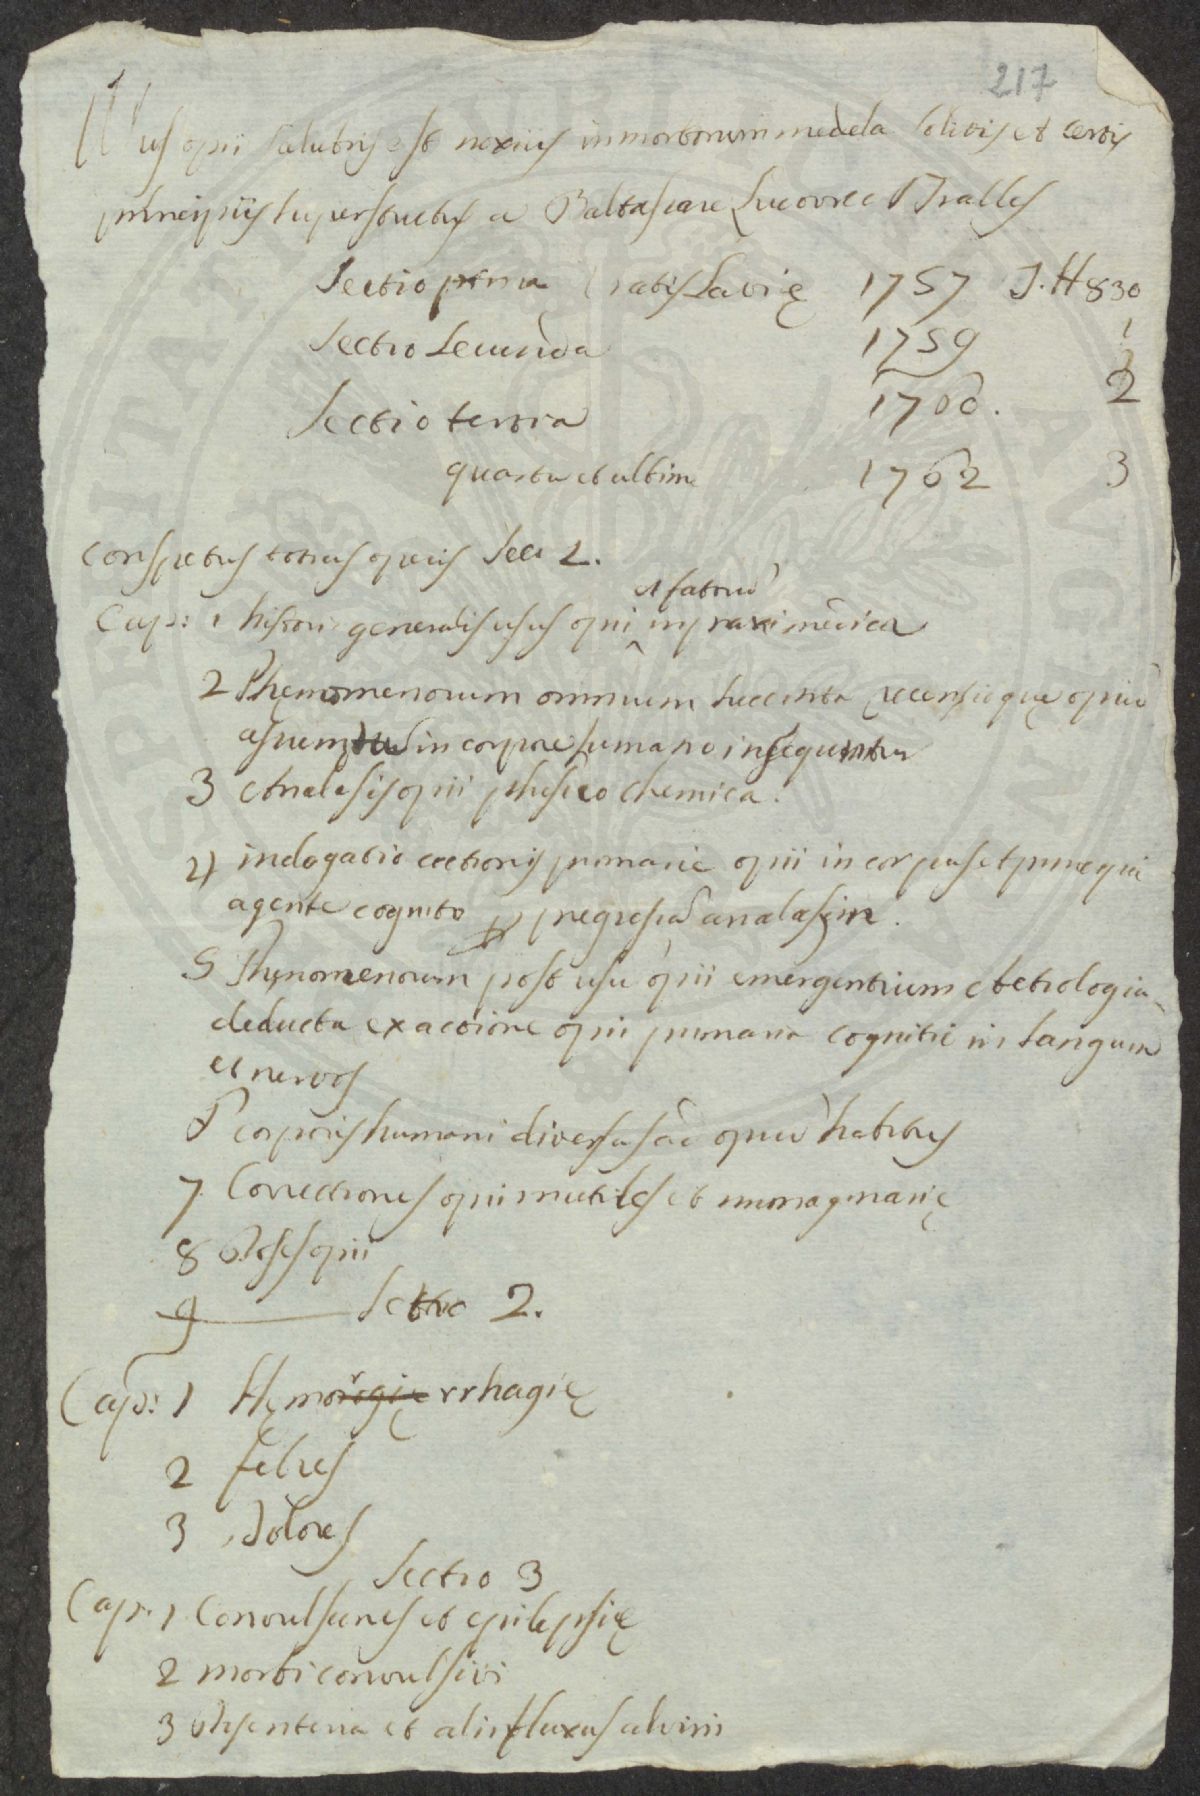 217
Usus opii salubris et noxius in morborum medela solidis et certis
principiis superstructus a Baltasare Ludovico Tralles
Sectio prima Vratislavię 1757 J. H 830
Sectio secunda 1759 1
Sectio tertia 1760. 2
quarta et ultima 1762 3
Conspectus totius operis Sec 1.
Cap: 1 histori generalis usus opii in praxi medica
2 Phęnomenorum omnium succinta recensio quę opiu
asumtu in corpore humano insequntur
3 Analesis opii phisico chemica.
4 indagatio actionis primarię opii in corpus et principia
agente cognito p pregresā analasin.
5 Phęnomenorum post usu opii emergentium Aetiologia
deducta ex actione opii primaria cognitie in sanguinē
et nervos
6 corporis humani diversus ad opiū habitus
7 Correctiones opii inutiles et immaginarię
8 Doses opii
9 Sectio 2.
Cap: 1 Hęmorogię rrhagię
2 febres
3 Dolores
Sectio 3
Cap. 1 Convulsiones et epilepsię
2 morbi convulsivi
3 Disenteria et alii fluxus alvini